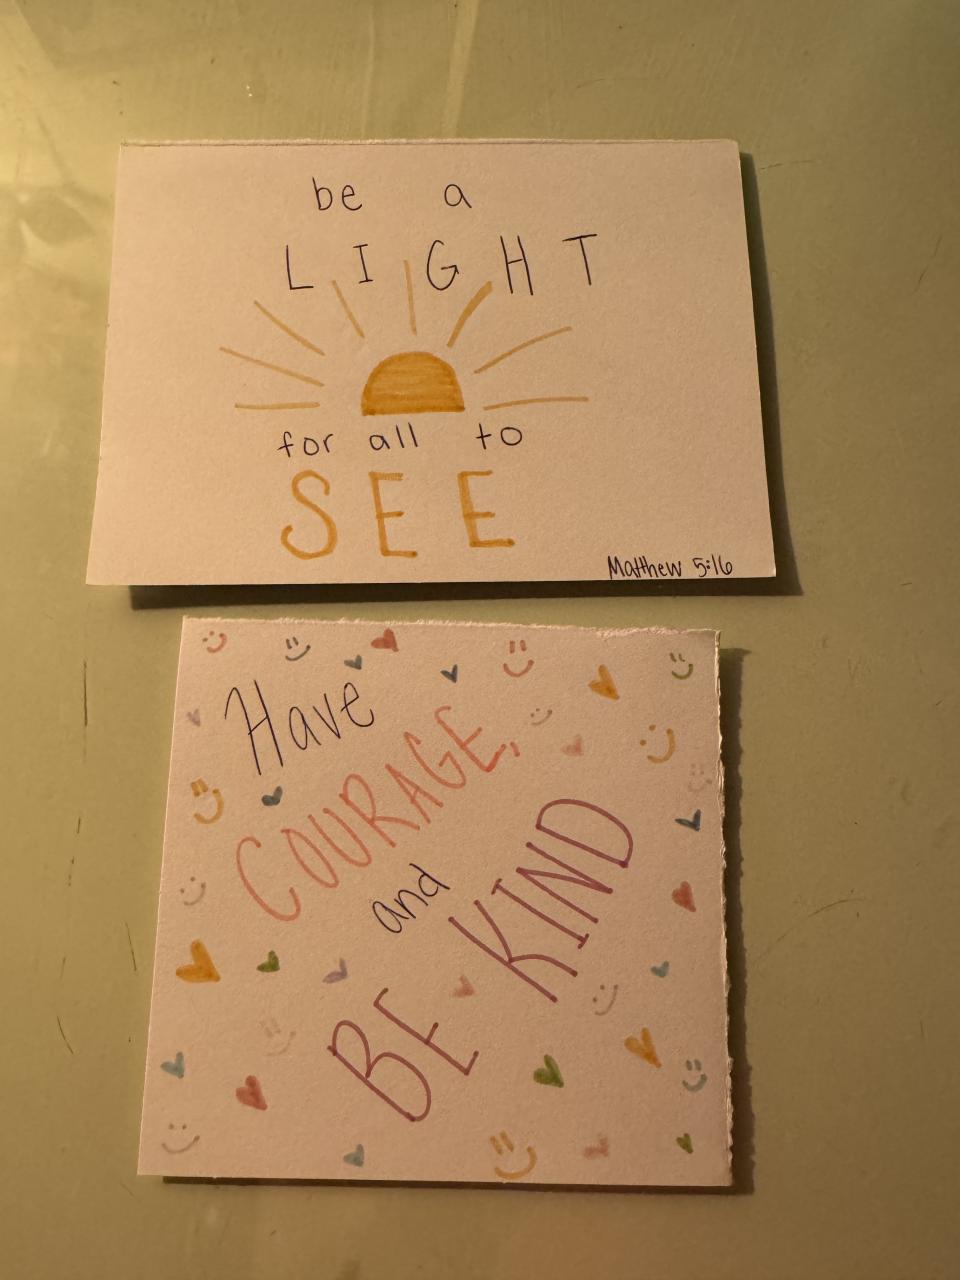 be a
LIGHT
for all to
SEE
Matthew 5:16
Have
COURAGE,
and
BE KIND